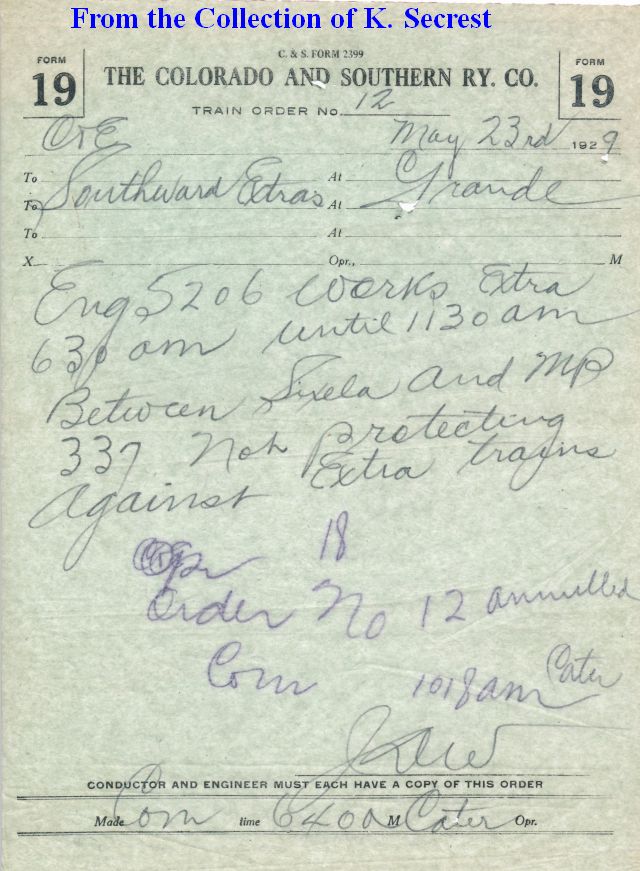 From the Collection of K. Secrest
C. & S. FORM 2399
FORM 19
THE COLORADO AND SOUTHERN RY. CO.
FORM 19
TRAIN ORDER No. 12
C&E May 23rd 1929
To At
To Southward Extras At Grande
To At
X Opr., M
Eng 5206 works Extra
630 am until 1130 am
Between Sixela and MP
337 Not protecting
Against Extra trains
18
Order No 12 annulled
Com 1018 am Cater
CONDUCTOR AND ENGINEER MUST EACH HAVE A COPY OF THIS ORDER
Made Com time 640a M Cater Opr.